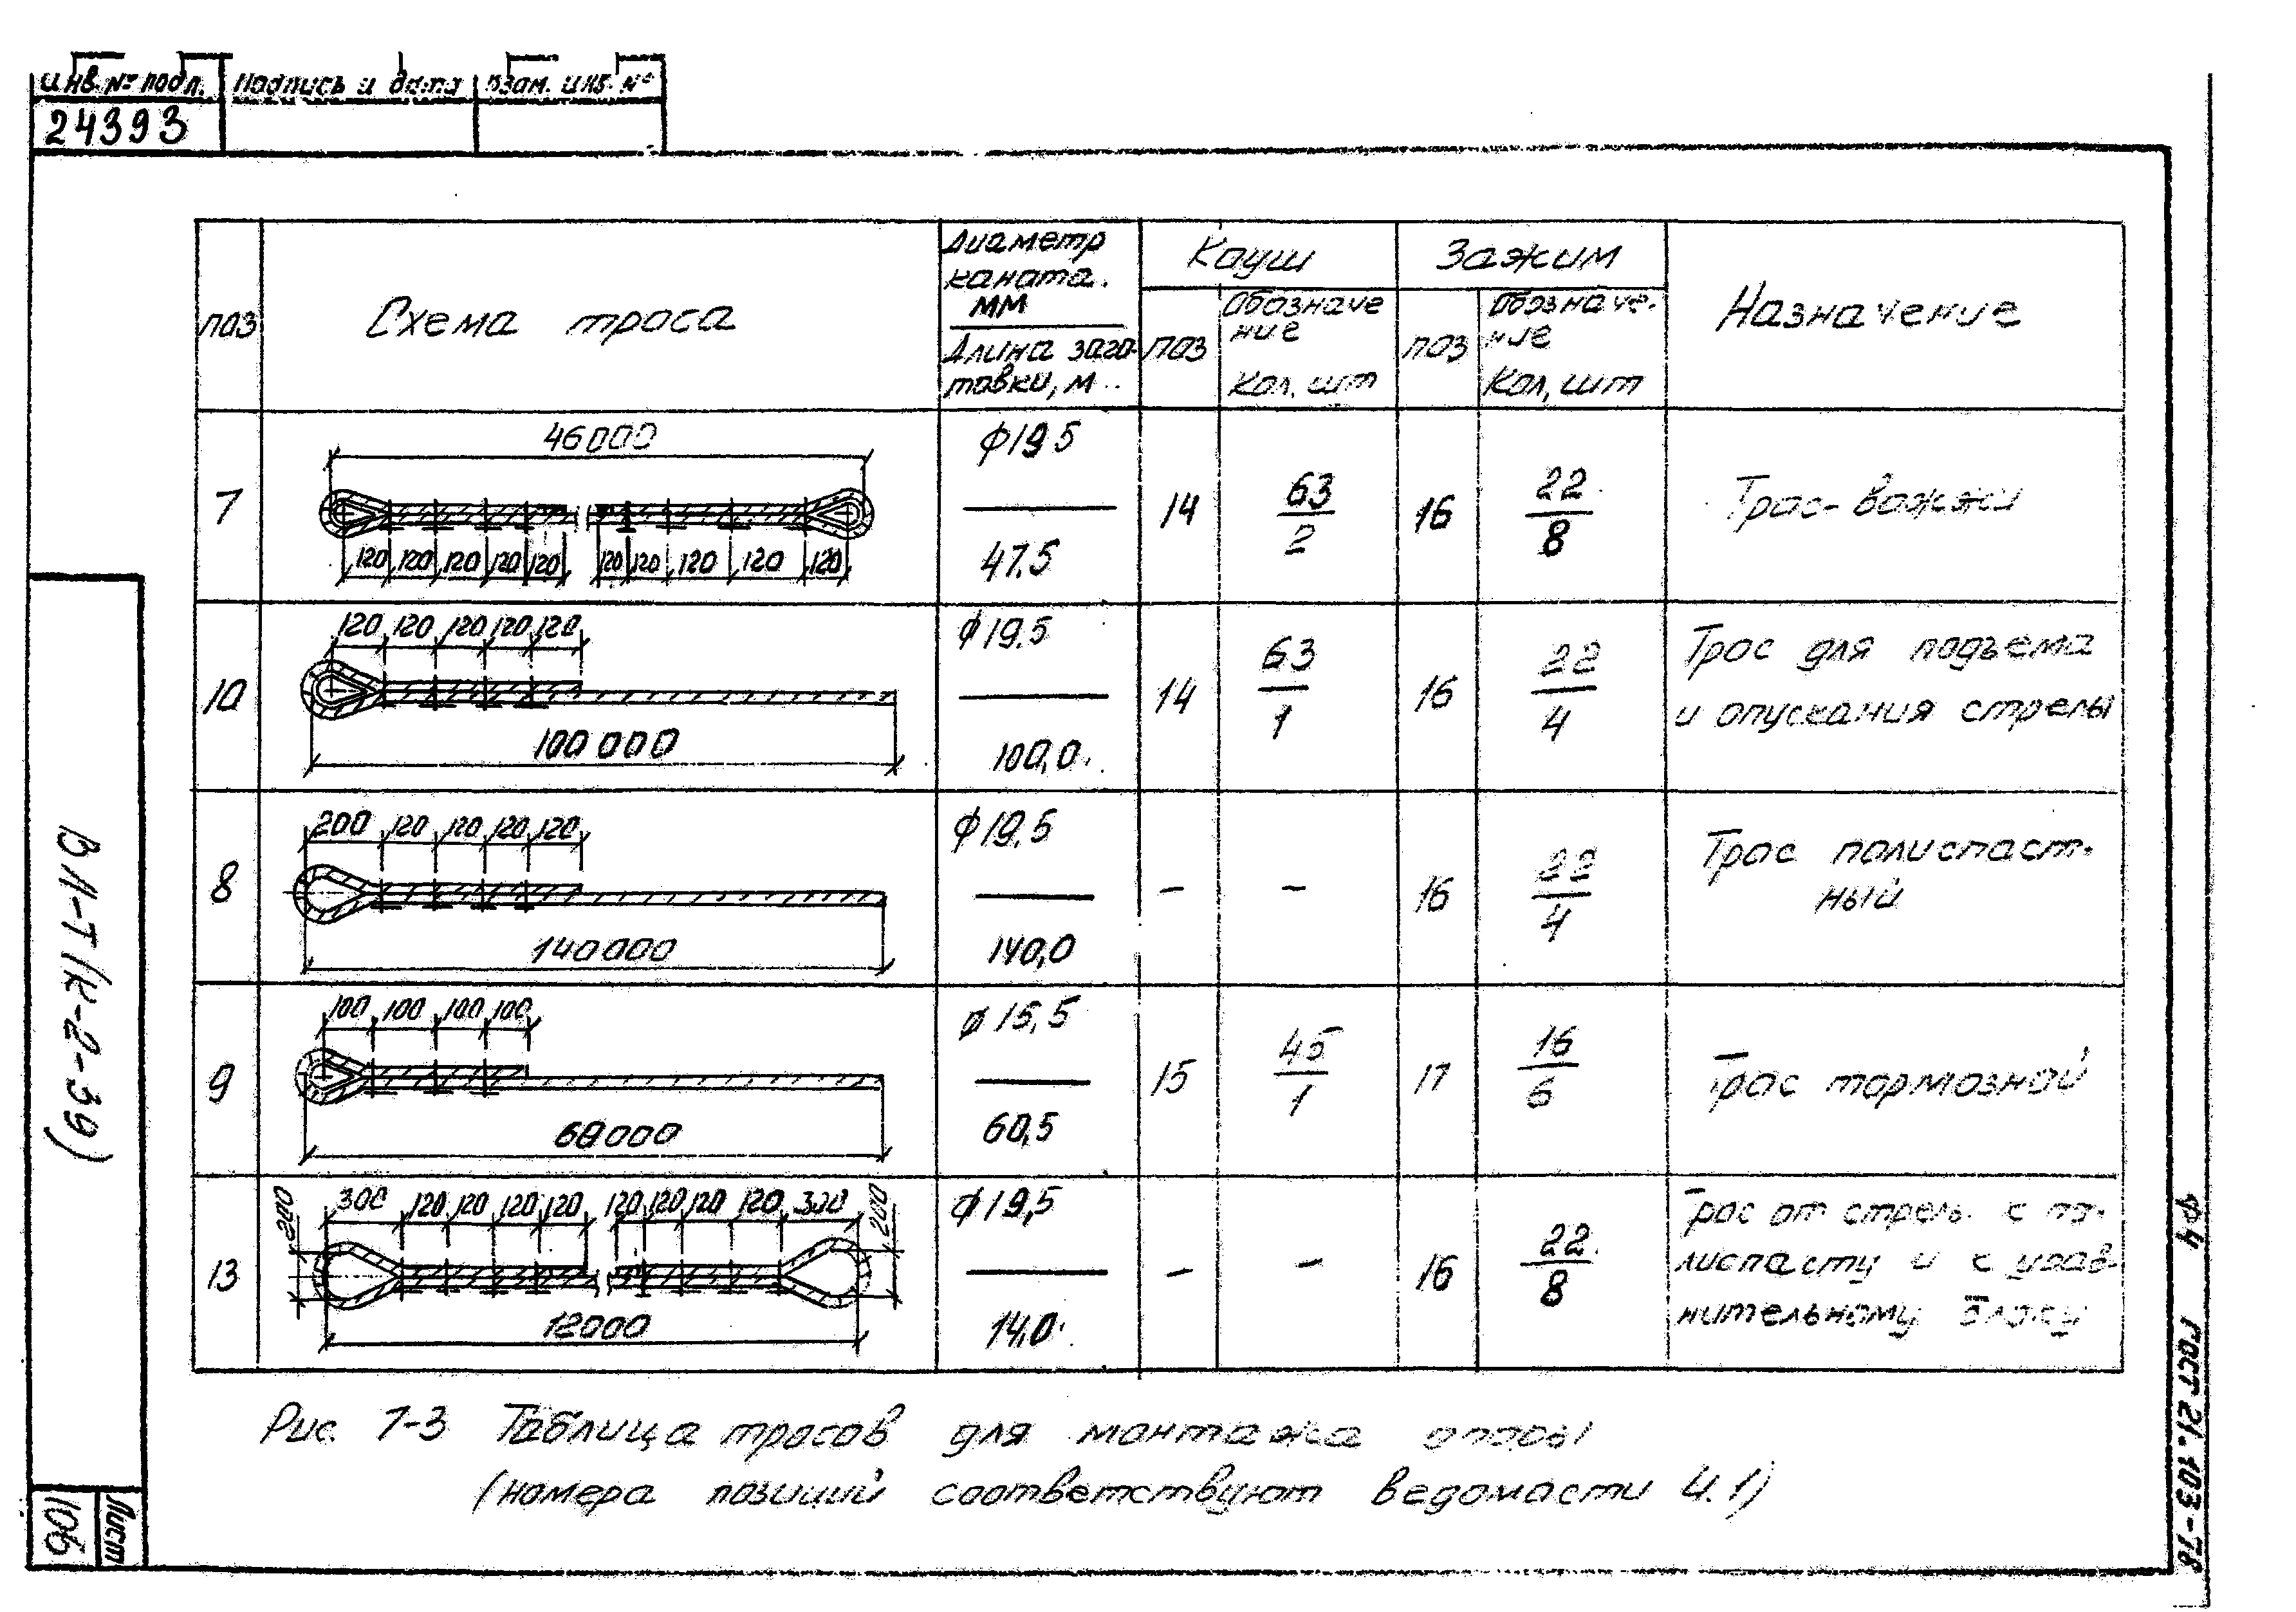 Инв. № подл.
Подпись и дата
Взам. инв. №
24393
поз
Схема троса
Диаметр
каната.
мм
Длина заго-
товки, м
Кауш
поз
Обозначе
ние
Кол. шт
Зажим
поз
Обозначе-
ние
Кол, шт
Назначение
7
46000
120 120 120 120 120 120 120 120 120 120
ϕ19,5
47.5
14
63
2
16
22
8
Трос-вожжи
10
120 120 120 120 120
100 000
ϕ19.5
100,0
14
63
1
16
22
4
Трос для подъема
и опускания стрелы
8
200 120 120 120 120
140000
ϕ19.5
140,0
–
–
16
22
4
Трос полиспаст-
ный
9
100 100 100 100
60000
ϕ15,5
60,5
15
45
1
17
16
6
Трос тормозной
13
200
300 120 120 120 120 120 120 120 120 300
200
12000
ϕ19,5
14,0
–
–
16
22
8
Трос от стрелы к по-
лиспасту и к урав-
нительному блоку
Рис 7-3 Таблица тросов для монтажа опоры
(номера позиций соответствуют ведомости 4.1)
ВЛ-Т(К-2-39)
Лист
106
Ф4 ГОСТ 21.103-78